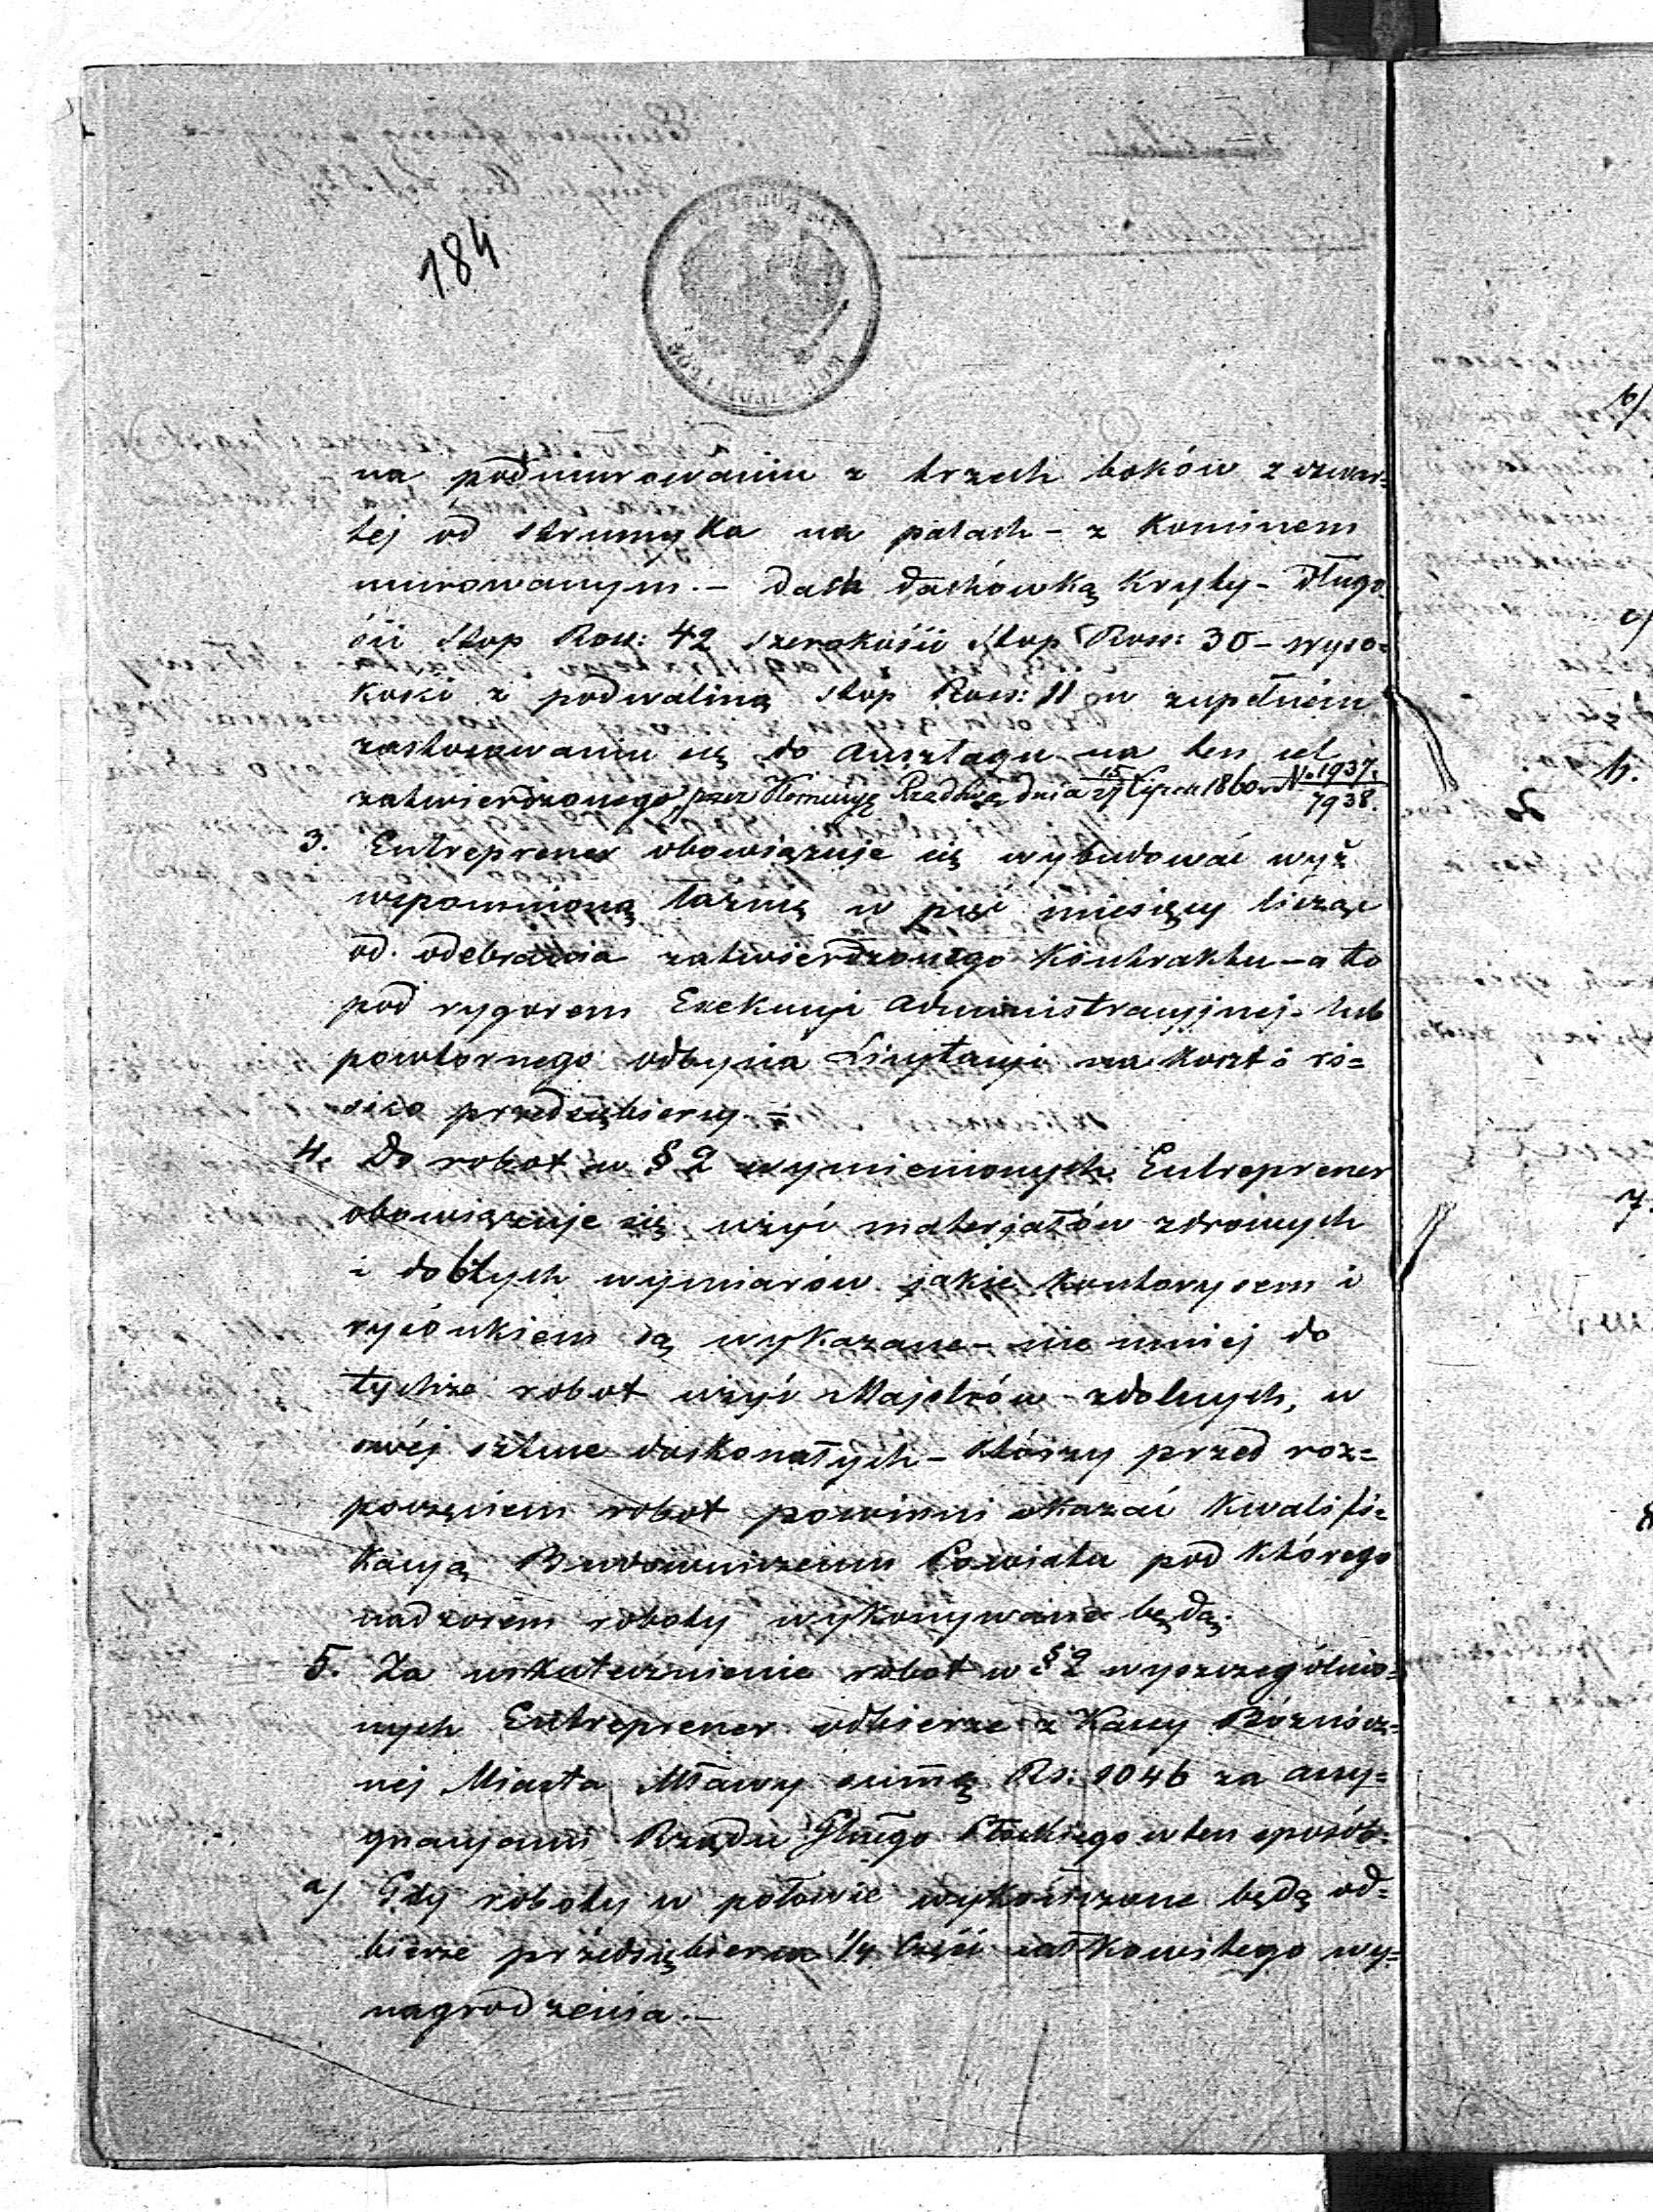 184
na podmurowaniu z trzech boków z czwar=
tej od strumyka na palach – z kominem
murowanym. – Dach dachówką kryty – długo
ści stop Ross: 42 szerokości stop Ross: 30 – wyso=
kości z podwaliną stop Ross: 11 w zupełném
zastosowaniu się do Anszlagu na ten cel
zatwierdzonego przez Kommissyę Rządową dnia 15/27 Lipca 1860 r. No 1937/7938.
3. Entreprener obowiązuje się wybudować wyż
wspomnioną łaznię w pięć miesięcy licząc
od odebrania zatwierdzonego Kontraktu – a to
pod rygorem Exekucyi Administracyjnej lub
powtornego odbycia Licytacyi na koszt i ri=
siko przedsiębiercy. –
4. Do robot w § 2 wymienionych Entreprener
obowiązuje się użyć materjałów zdrowych
i dobrych wymiarów jakie kosztorysem i
rysónkiem są wykazane – nie mniej do
tychże robot użyć Majstrów zdolnych, w
swéj sztuce doskonałych – którzy przed roz=
poczęciem robot powinni okazać kwalifi=
kacyą Budowniczemu Powiatu pod którego
nadzorem roboty wykonywane będą.
5. Za uskutecznienie robot w § 2 wyszczególnio=
nych Entreprener odbierze z Kassy Bóznicz=
nej Miasta Mławy summę Rs: 1046 za assy=
gnacyami Rządu Glnego Płockiego w ten sposób:
a/ Gdy roboty w połowie wykończone będą od=
bierze przedsiębierca 1/4 Część całkowitego wy=
nagrodzenia. –